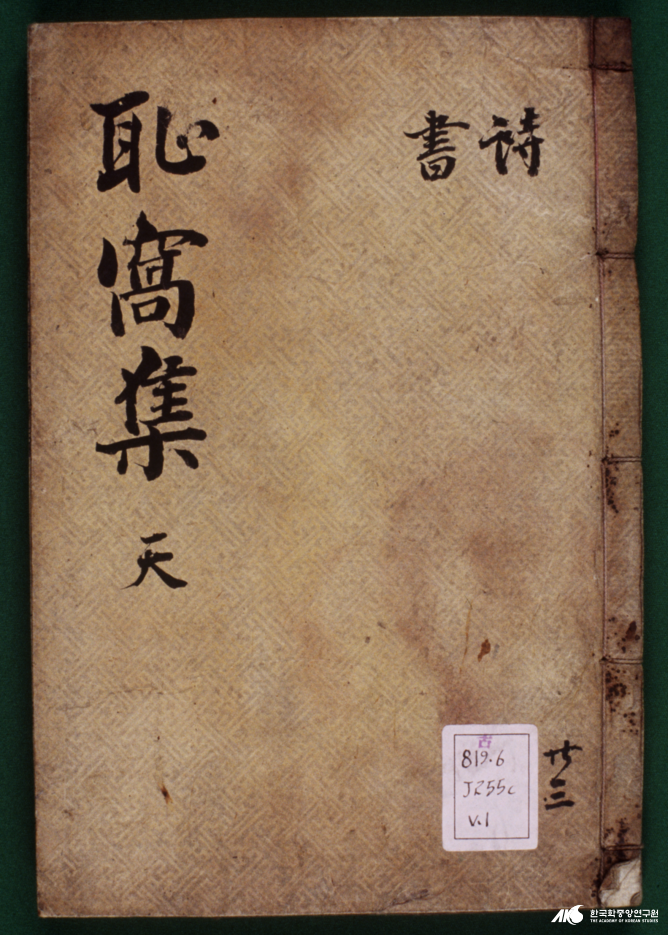 詩
書
恥窩集 天
共三
古
819.6
J255c
V.1
한국학중앙연구원
THE ACADEMY OF KOREAN STUDIES